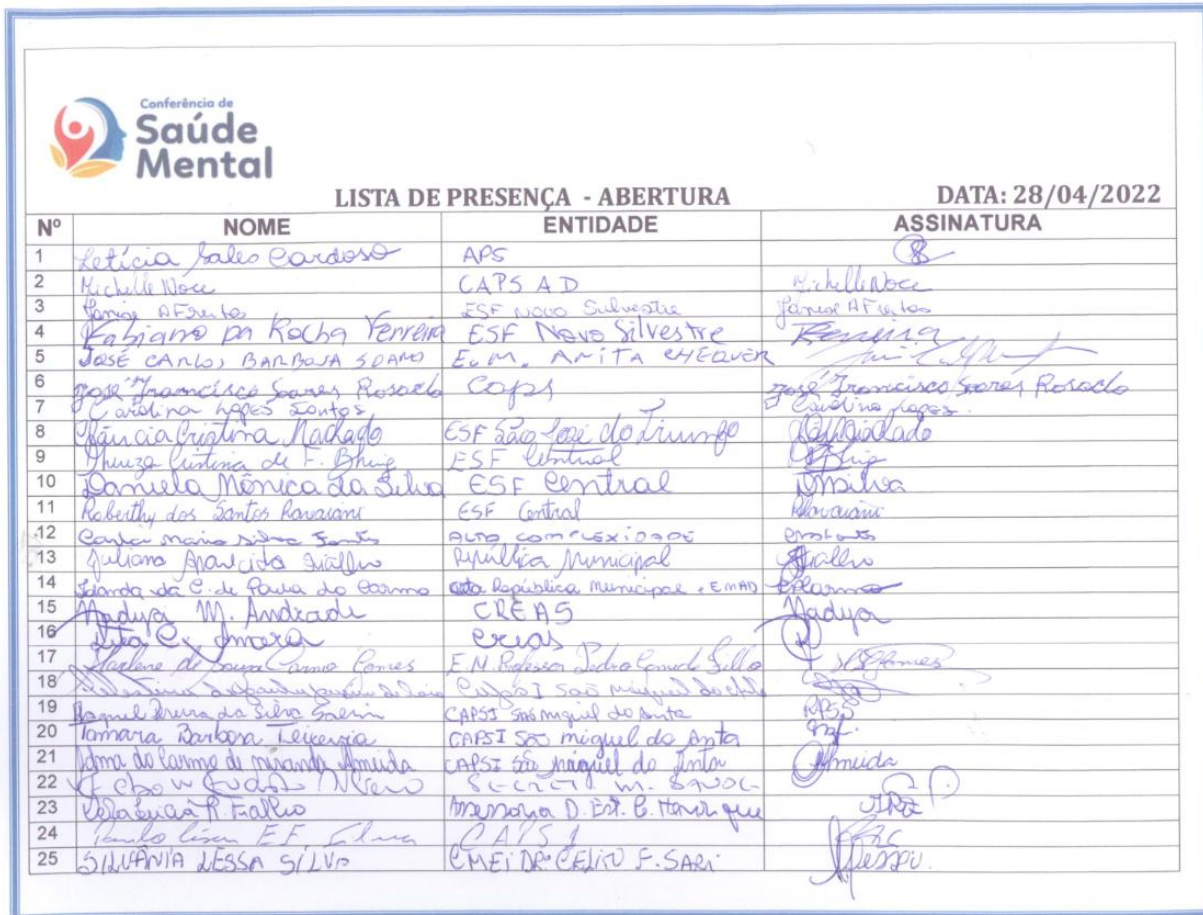 Conferência de
Saúde
Mental
LISTA DE PRESENÇA - ABERTURA DATA: 28/04/2022
Nº NOME ENTIDADE ASSINATURA
1 Letícia Sales Cardoso APS
2 Michelle Noce CAPS AD Michelle Noce
3 Janise A Freitas ESF Novo Silvestre Janise A Freitas
4 Fabiano da Rocha Ferreira ESF Novo Silvestre
5 JOSÉ CARLOS BARBOSA SOARES E.M. ANITA CHEQUER
6 José Francisco Soares Rosado Caps José Francisco Soares Rosado
7 Carolina Lopes Santos Carolina Lopes
8 Cristina Machado ESF São José do Triunfo
9 Thereza Cristina de F. Bhing ESF Central
10 Daniela Mônica da Silva ESF Central DMSilva
11 Roberthy dos Santos Ravaiani ESF Central
12 Maria Silva ALTA COMPLEXIDADE
13 Juliana Aparecida Fialho República Municipal
14 da C. de Paula do Carmo República Municipal EMAD
15 Nadya M. Andrade CREAS Nadya
16 Rita Creas
17 Marlene de Souza Carmo Gomes E.M. Professor Pedro Gomide Filho
18 São Miguel do
19 Raquel Pereira da Silva CAPSI São miguel do Anta RPSS
20 Tamara Barbosa Teixeira CAPSI São miguel do Anta
21 do Carmo de miranda Almeida CAPSI São miguel do Anta Almeida
22
23 Vera Lúcia R. Fialho Assessoria D. Est. C. Henrique
24 Paulo César E F CAPSI
25 SILVÂNIA LESSA SILVA CMEI DR. CELITO F. SARI